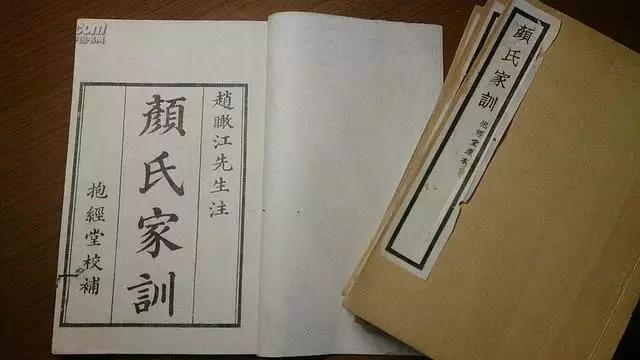 趙瞰江先生注
顏氏家訓
抱經堂校補
顏氏家訓
抱經堂原本
.com